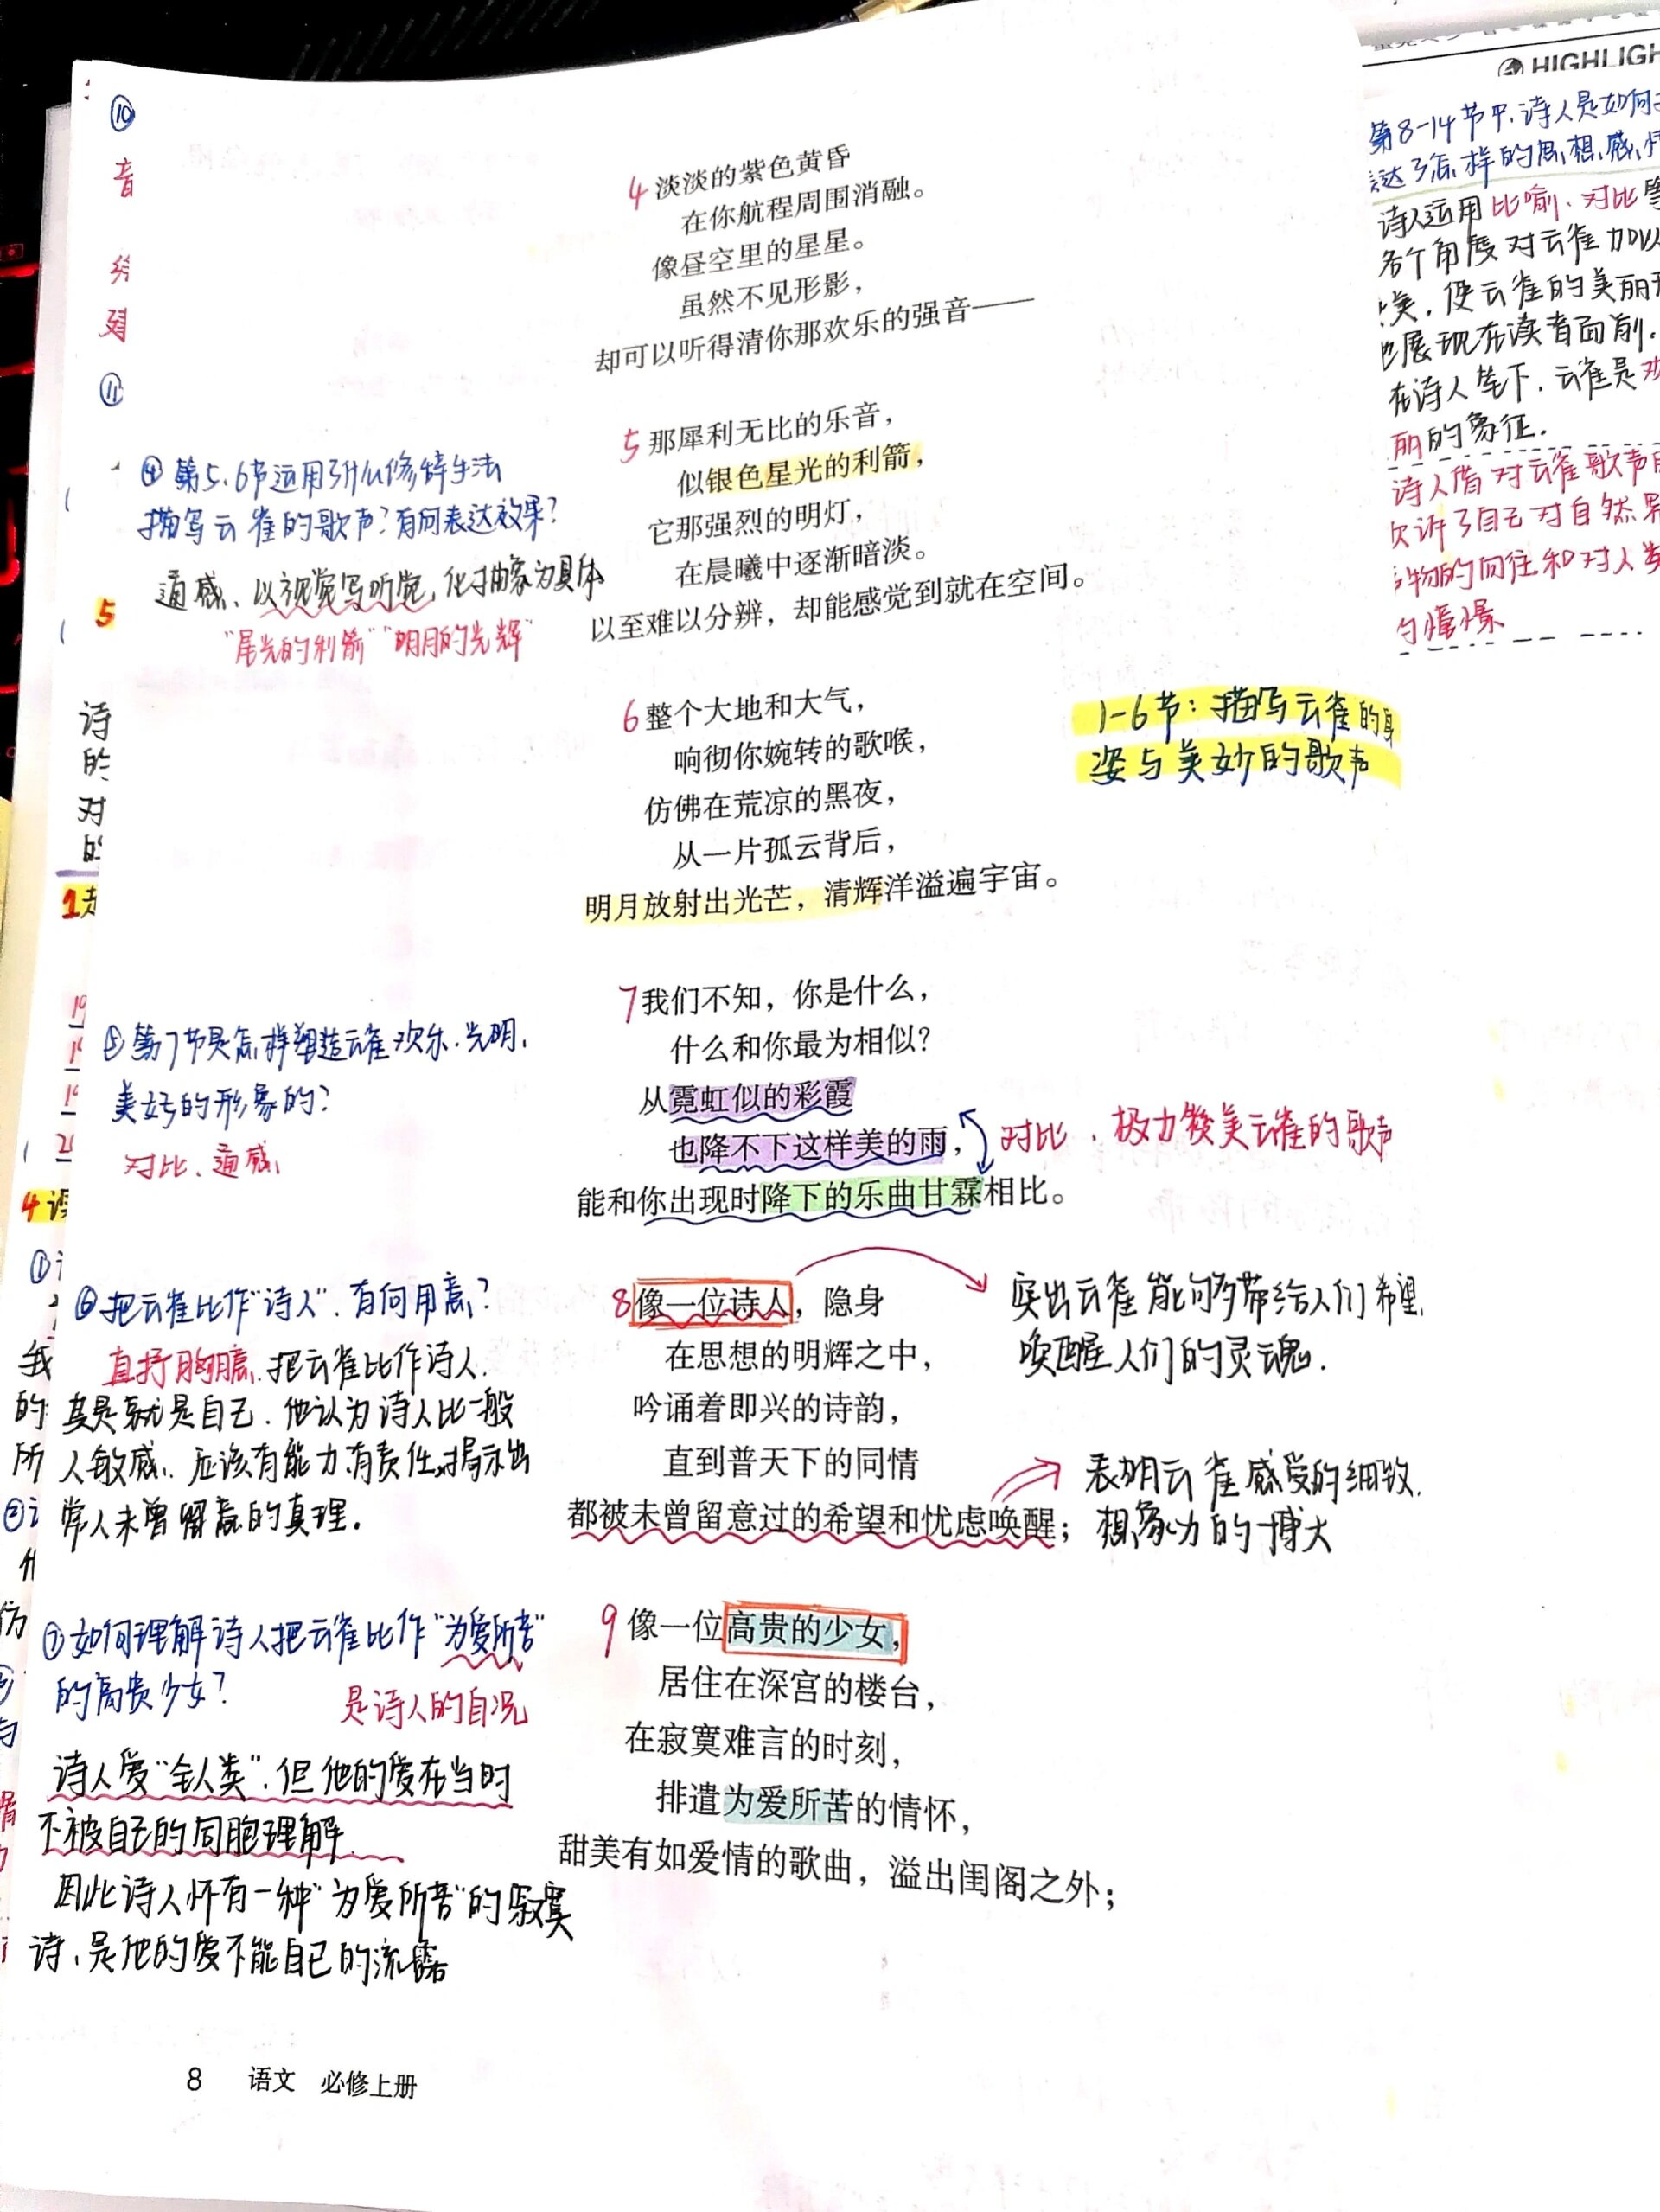 4 淡淡的紫色黄昏
在你航程周围消融。
像昼空里的星星。
虽然不见形影，
却可以听得清你那欢乐的强音——
5 那犀利无比的乐音，
似银色星光的利箭，
它那强烈的明灯，
在晨曦中逐渐暗淡。
以至难以分辨，却能感觉到就在空间。
6 整个大地和大气，
响彻你婉转的歌喉，
仿佛在荒凉的黑夜，
从一片孤云背后，
明月放射出光芒，清辉洋溢遍宇宙。
7 我们不知，你是什么，
什么和你最为相似？
从霓虹似的彩霞
也降不下这样美的雨，
能和你出现时降下的乐曲甘霖相比。
8 像一位诗人，隐身
在思想的明辉之中，
吟诵着即兴的诗韵，
直到普天下的同情
都被未曾留意过的希望和忧虑唤醒；
9 像一位高贵的少女，
居住在深宫的楼台，
在寂寞难言的时刻，
排遣为爱所苦的情怀，
甜美有如爱情的歌曲，溢出闺阁之外；
⑩
音
⑪
④ 第5、6节运用了什么修辞手法
描写云雀的歌声？有何表达效果？
通感、以视觉写听觉，化抽象为具体
"星光的利箭" "明月的光辉"
5
⑤ 第7节是怎样塑造云雀欢乐、光明、
美好的形象的？
对比、通感
⑥ 把云雀比作"诗人"，有何用意？
直抒胸臆，把云雀比作诗人.
其实就是自己. 他认为诗人比一般
人敏感，应该有能力有责任揭示出
常人未曾留意的真理.
⑦ 如何理解诗人把云雀比作"为爱所苦"
的高贵少女？
是诗人的自况
诗人爱"全人类"，但他的爱在当时
不被自己的同胞理解.
因此诗人怀有一种"为爱所苦"的寂寞
诗，是他的爱不能自已的流露
1-6节：描写云雀的身
姿与美妙的歌声
对比，极力赞美云雀的歌声
突出云雀能够带给人们希望，
唤醒人们的灵魂.
表明云雀感受的细致.
想象力的博大
诗
的
对
的
我
的
所
8 语文 必修上册
HIGHLIGH
第8-14节中，诗人是如何
达了怎样的思想感情
诗人运用比喻、对比等
各个角度对云雀加以
美，使云雀的美丽形
展现在读者面前.
在诗人笔下，云雀是欢
丽的象征.
诗人借对云雀歌声的
欠诉了自己对自然界
物的向往和对人类
的憧憬